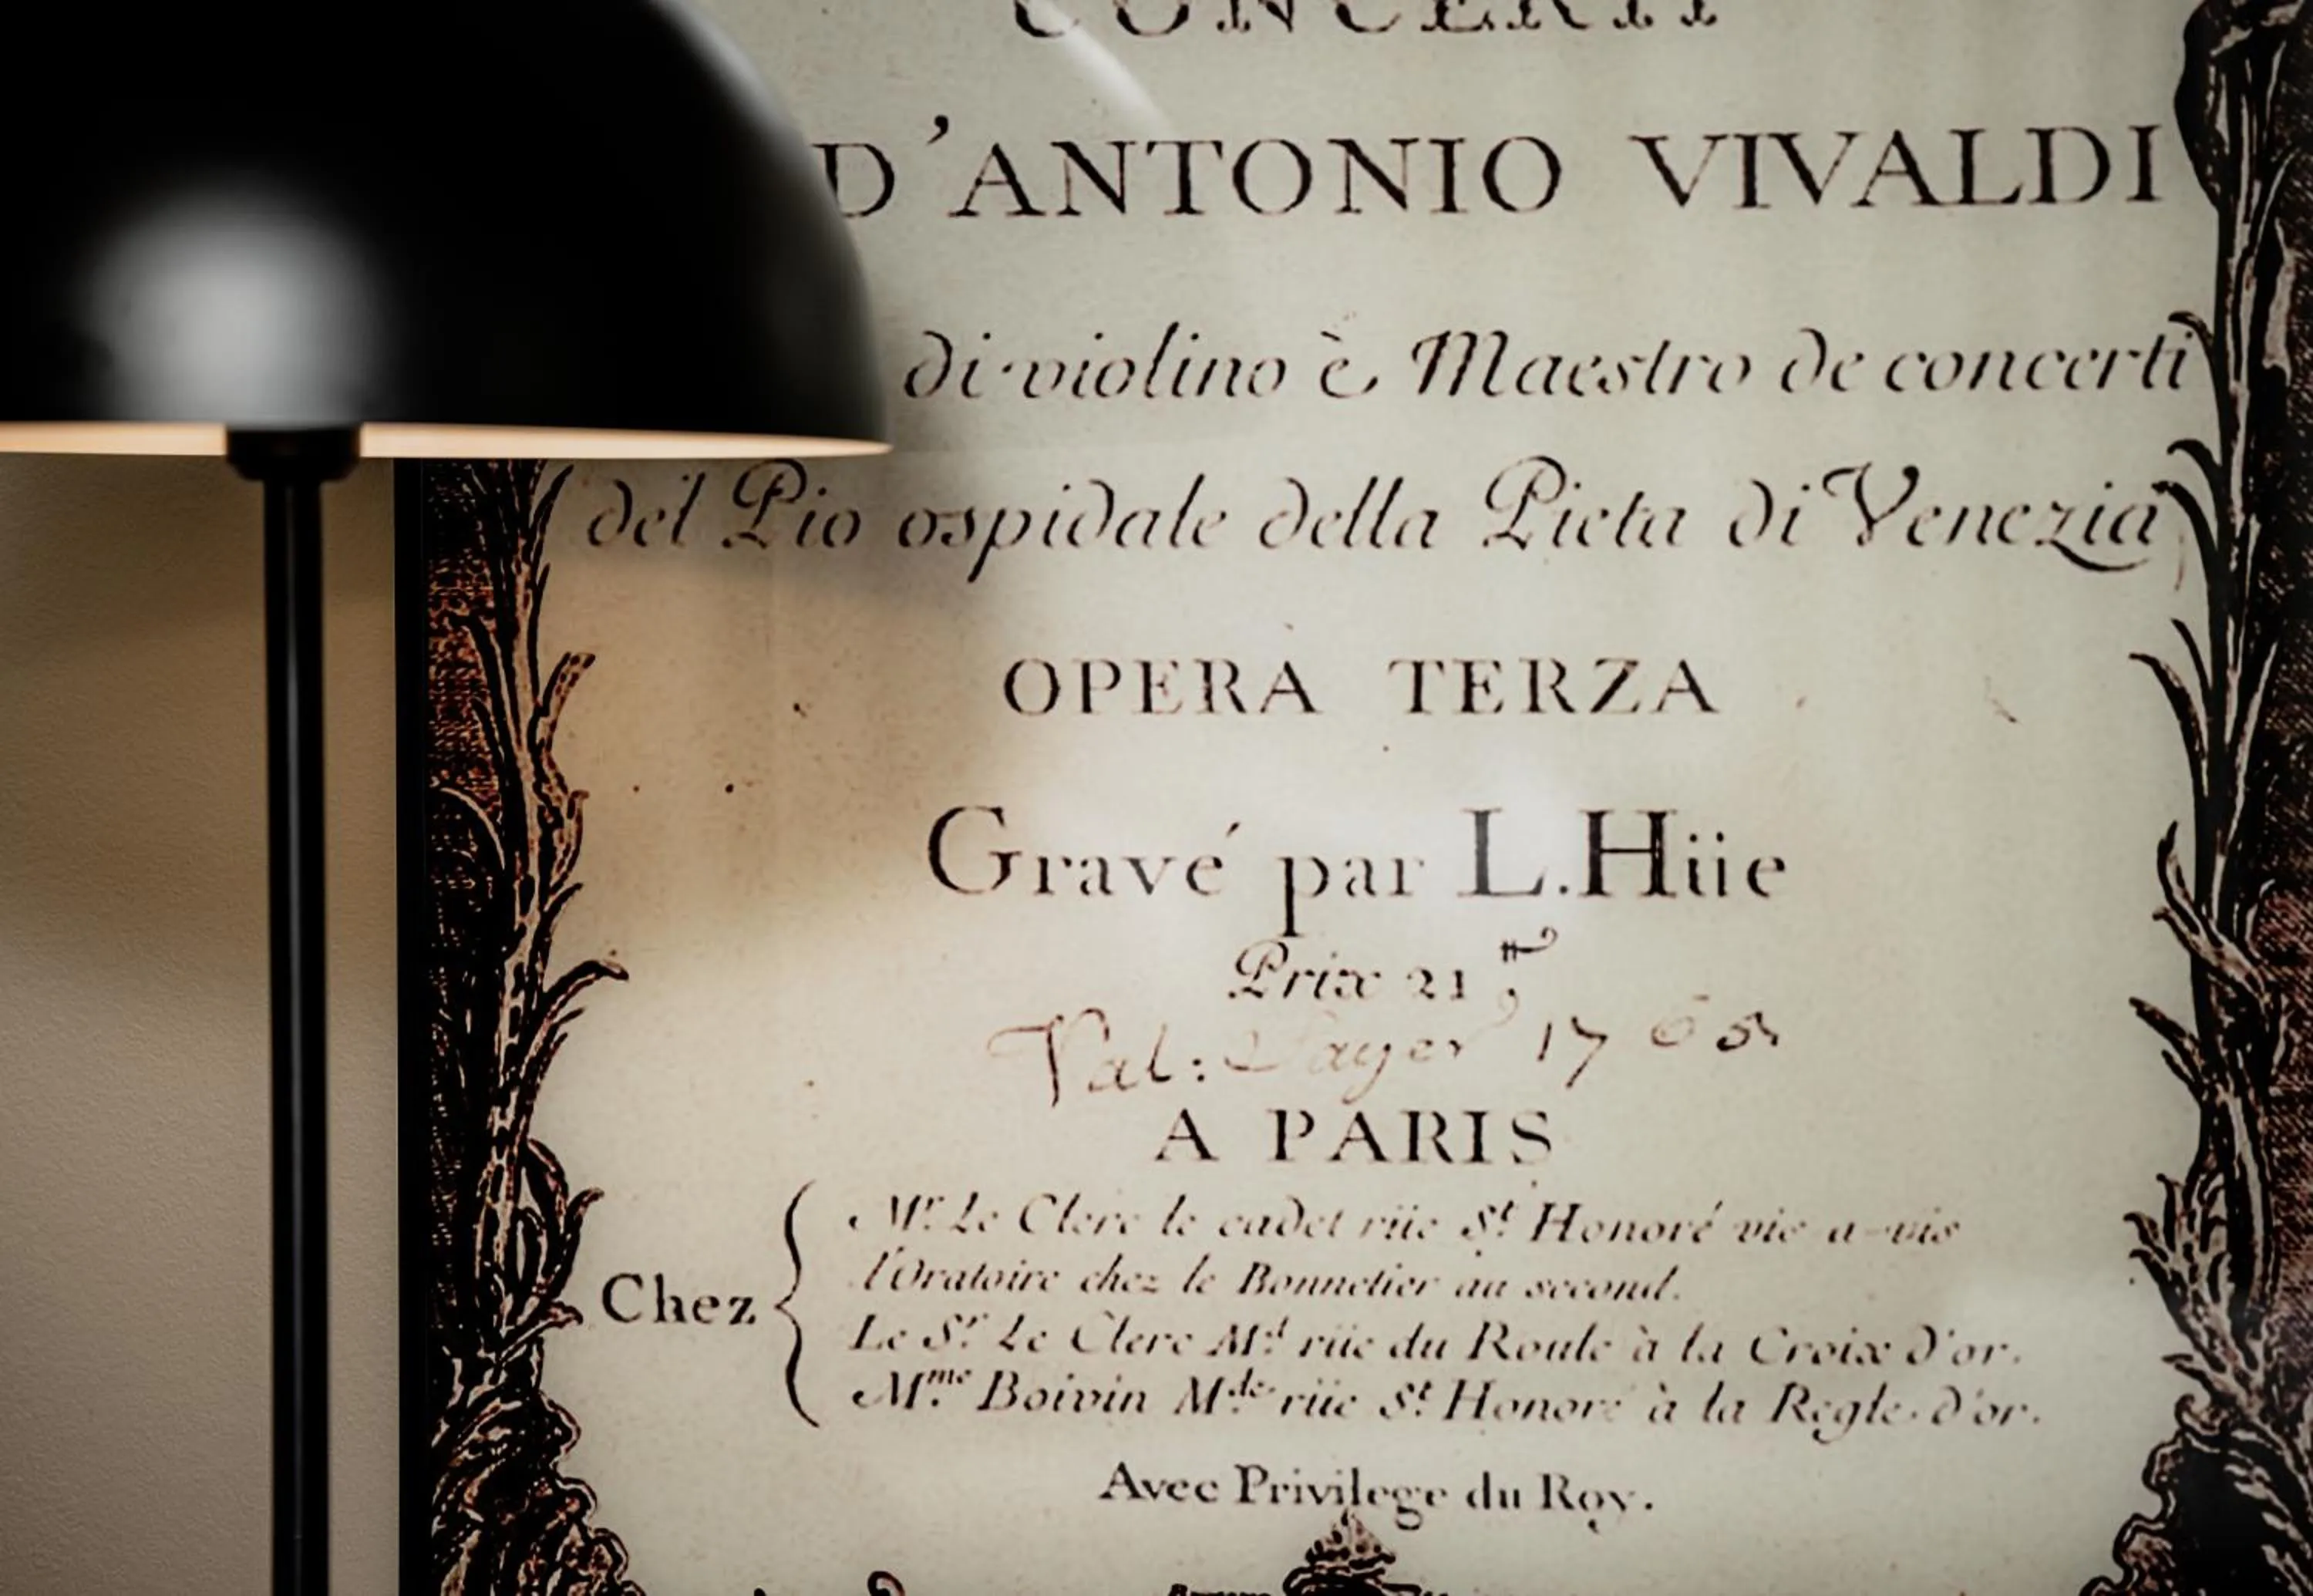 CONCERTI
D'ANTONIO VIVALDI
di violino è Maestro de concerti
del Pio ospidale della Pieta di Venezia
OPERA TERZA
Gravé par L. Hüe
Prix 21
Val: 17
A PARIS
Chez
Mr. Le Clerc le cadet rüe St. Honoré vis a-vis
l'Oratoire chez le Bonnetier au second.
Le Sr. Le Clerc Md. rüe du Roule à la Croix d'or.
Mme. Boivin Mde. rüe St. Honoré à la Regle d'or.
Avec Privilege du Roy.